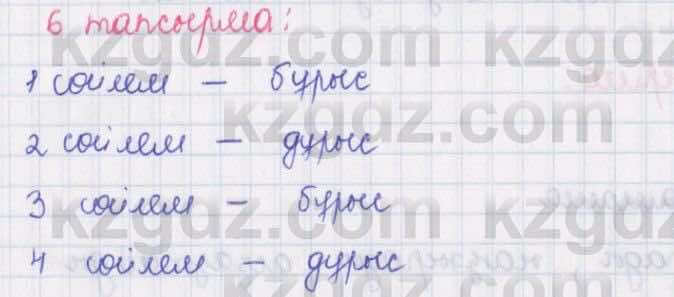 6 тапсырма:
1 сөйлем – бұрыс
2 сөйлем – дұрыс
3 сөйлем – бұрыс
4 сөйлем – дұрыс
kzgdz.com kzgdz.com
kzgdz.com
kzgdz.com kzgdz.com